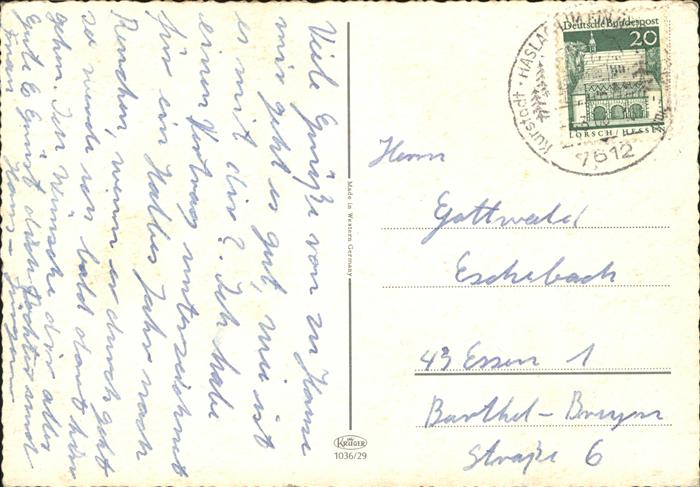 Viele Grüße von zu Hause
mir geht es gut, wie ist
es mit dir? Ich habe
einen Vertrag unterzeichnet
für ein Halbes Jahr nach
Renchen, wenn er durch geht
so werde ich bald dort hin
gehen. Ich Wünsche dir alles
Gute &
Hans-Jürgen
Made in Western Germany
KRÜGER
1036/29
Deutsche Bundespost
20
LORSCH/HESSEN
Kurstadt · HASLACH
7612
Herrn
Gottwald
Eschebach
43 Essen 1
Barthel-Bruyn
Straße 6